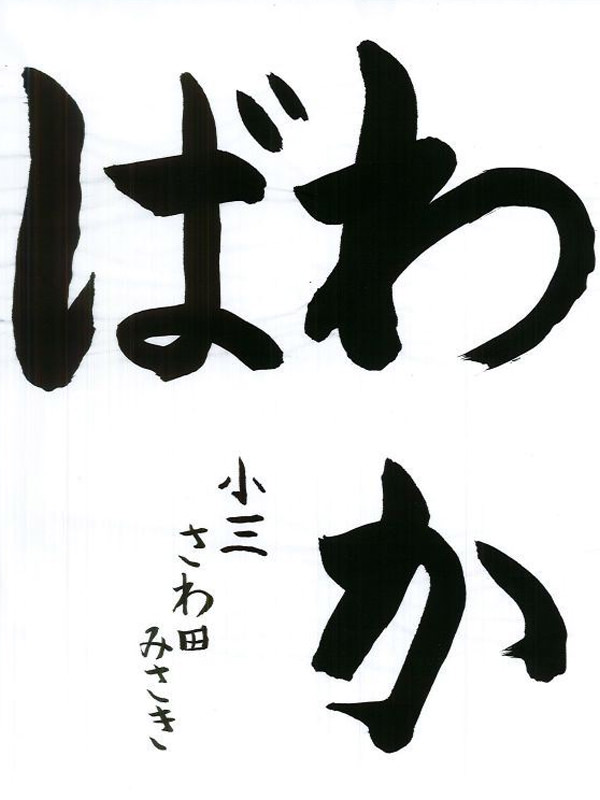 わか
ば
小三
さわ田
みさき